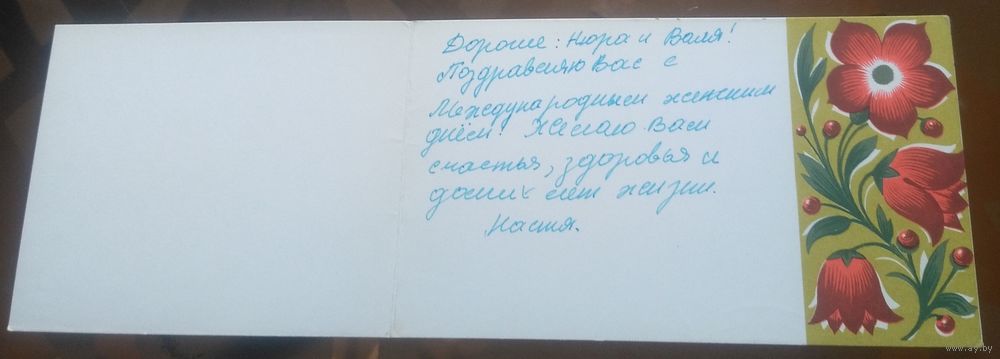 Дорогие: Нюра и Валя!
Поздравляю Вас с
Международным женским
днём! Желаю Вам
счастья, здоровья и
долгих лет жизни.
Настя.
www.ay.by